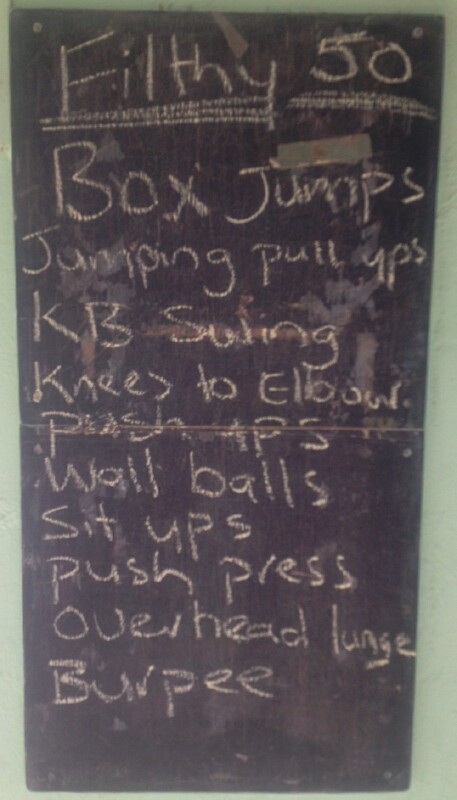 Filthy 50
Box Jumps
Jumping pull ups
KB Swing
Knees to Elbow.
Push ups
Wall balls
Sit ups
push press
overhead lunge
Burpee